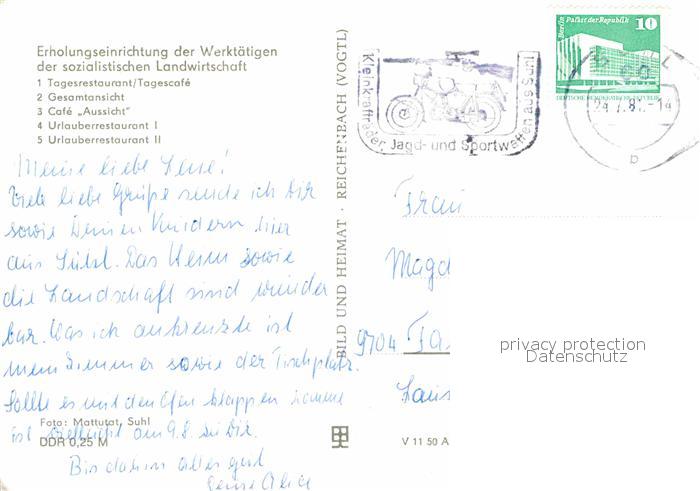 Erholungseinrichtung der Werktätigen
der sozialistischen Landwirtschaft
1 Tagesrestaurant/Tagescafé
2 Gesamtansicht
3 Café „Aussicht"
4 Urlauberrestaurant I
5 Urlauberrestaurant II
Meine liebe
Viele liebe Grüße sende ich Dir
sowie Deinen Kindern hier
aus Suhl. Das Heim sowie
die Landschaft sind wunder
bar. Was ich ankreuzte ist
mein Zimmer sowie der Tischplatz.
Sollte es mit den klappen komme
ich vielleicht am 9.8. zu Dir.
Bis dahin alles gut
Deine Alice
Foto: Mattutat, Suhl
DDR 0,25 M
BILD UND HEIMAT · REICHENBACH (VOGTL)
V 11 50 A
Kleinkrafträder, Jagd- und Sportwaffen aus Suhl
Berlin Palast der Republik 10
DEUTSCHE DEMOKRATISCHE REPUBLIK
24.7.81.-14
b
Frau
Magd
9704
privacy protection
Datenschutz